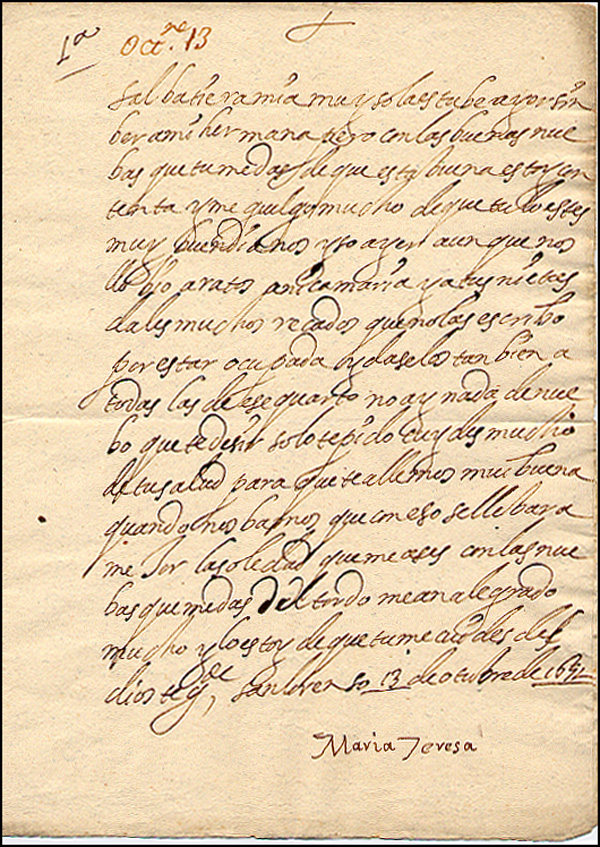 1ª Octre. 13
Salbatiera mia muy sola estube ayer sin
ber a mi hermana pero con las buenas nue
bas que tu me das de que esta buena estoy con
tenta y me guelgo mucho de que tu lo estes
muy buen dia nos yço ayer aunque nos
llobio a ratos a mi ca maria y a tus nietas
dales muchos recados que no las escribo
por estar ocupada y daselos tanbien a
todas las de ese quarto no ay nada de nue
bo que te desir solo te pido cuydes mucho
de tu salud para que te allemos mui buena
quando nos bamos que con eso se llebara
mejor la soledad que me ases con las nue
bas que me das del tordo me an alegrado
mucho y lo estoy de que tu me cuides del
dios te gde, San Loren so 13 de otubre de 16
Maria Teresa